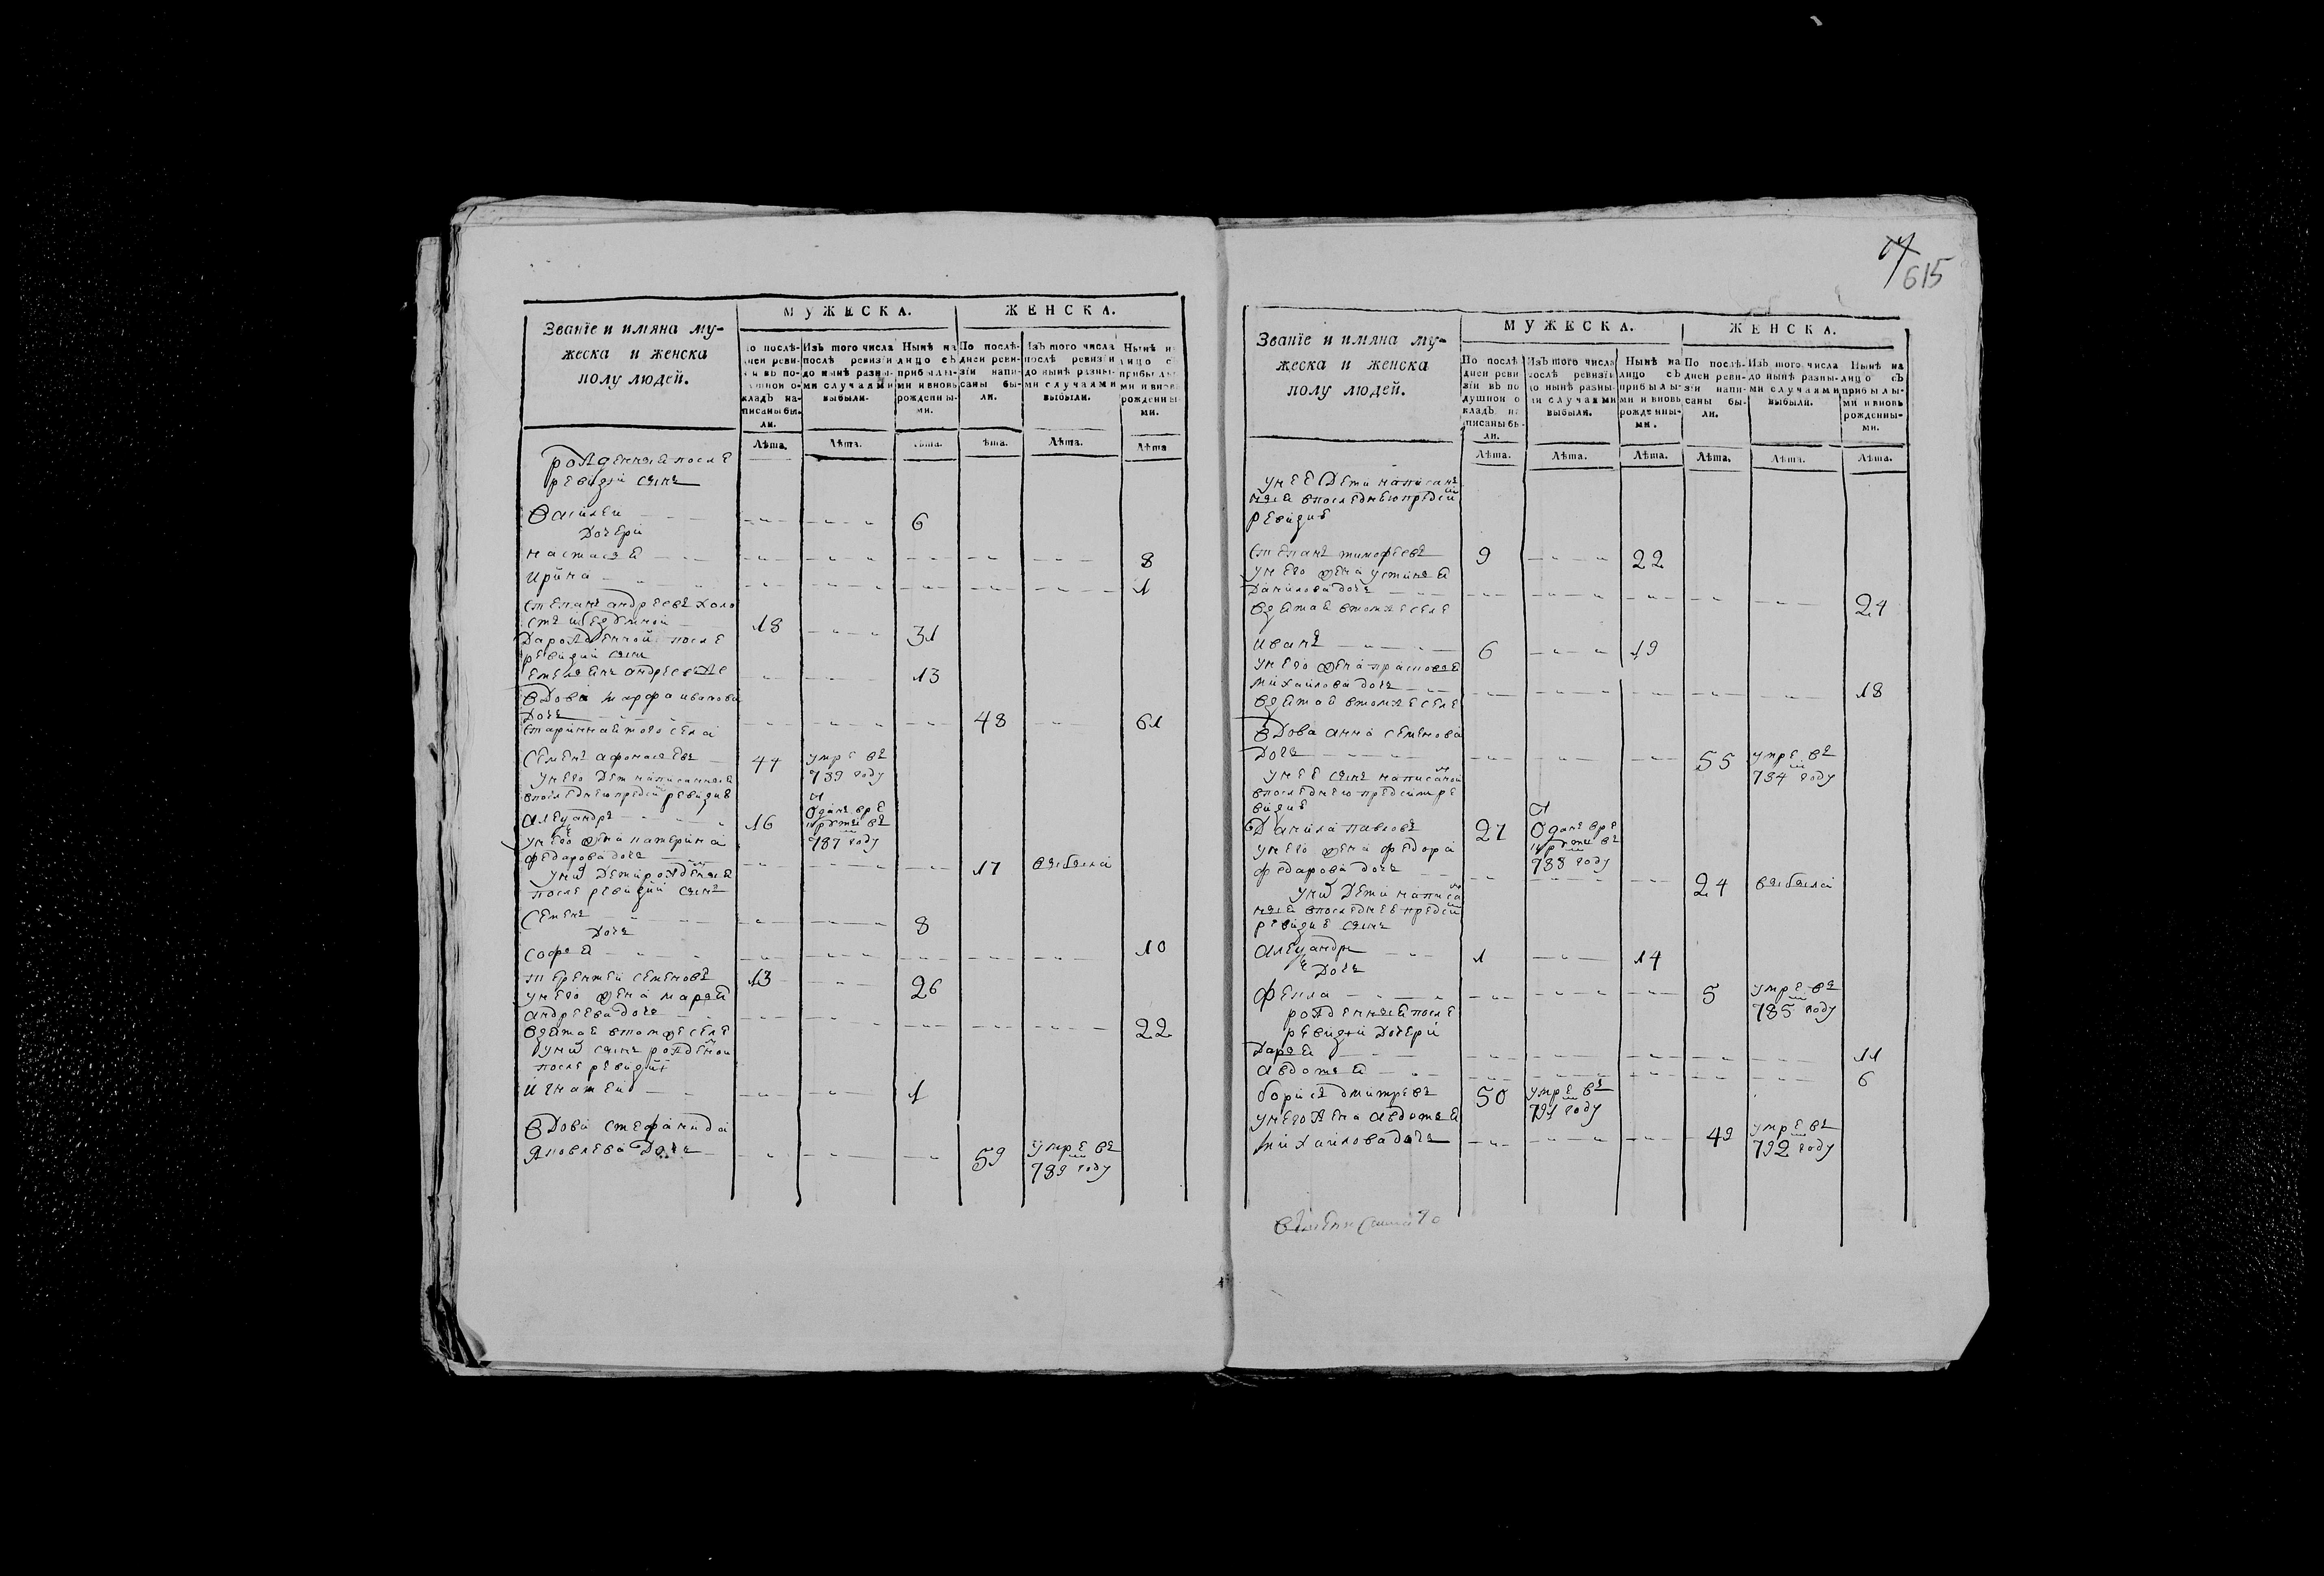 Званїе и имяна му-
жеска и женска
полу людей.
МУЖЕСКА.
ЖЕНСКА.
По послѣ-
дней реви-
зіи въ по-
душной о-
кладъ на-
писаны бы-
ли.
Изъ того числа
послѣ ревизїи
до нынѣ разны-
ми случаями
выбыли.
Нынѣ на
лицо съ
прибылы-
ми и вновь
рожденны-
ми.
По послѣ-
дней реви-
зїи напи-
саны бы-
ли.
Изъ того числа
послѣ ревизїи
до нынѣ разны-
ми случаями
выбыли.
Нынѣ на
лицо съ
прибылы-
ми и вновь
рожденны-
ми.
Лѣта. Лѣта. Лѣта. Лѣта. Лѣта. Лѣта
рожденныя после
ревизіи сынъ
Василеи 6
дочери
настасья 8
ирина 1
степанъ андреевъ холо
стъ 18 31
рожденной после
ревизии сынъ
емельянъ андреевъ 13
вдова марфа иванова
дочь 48 61
старинная того села
семенъ афонасьевъ 44 умре въ
739 году
у него дети написанныя
в последнею пред сим ревизию
александръ 16 Отданъ в ре
круты въ
787 году
у него жена катерина
федарова дочь 17 выбыла
у них дети рожденыя
после ревизии сынъ
семенъ 8
дочь
софья 10
терентеи семеновъ 13 26
у него жена марья
андреева дочь 22
взятая в том же селе
у них сынъ рожденои
после ревизии
игнатеи 1
вдова стефанида
яковлева дочь 59 умре въ
789 году
615
Званїе и имяна му-
жеска и женска
полу людей.
МУЖЕСКА.
ЖЕНСКА.
По послѣ
дней реви
зїи въ по
душной о
кладъ на
писаны бы-
ли.
Изъ того числа
послѣ ревизїи
до нынѣ разны-
ми случаями
выбыли.
Нынѣ на
лицо съ
прибылы-
ми и вновь
рожденны-
ми.
По послѣ-
дней реви-
зїи напи-
саны бы-
ли.
Изъ того числа
послѣ ревизїи
до нынѣ разны-
ми случаями
выбыли.
Нынѣ на
лицо съ
прибылы-
ми и вновь
рожденны-
ми.
Лѣта. Лѣта. Лѣта. Лѣта. Лѣта. Лѣта.
у нее дети написан
ныя в последнею пред сим
ревизию
степанъ тимофеевъ 9 22
у него жена устинья
данилова дочь 24
взятая в том же селе
иванъ 6 19
у него жена прасковья
михаилова дочь 18
взятая в том же селе
вдова анна семенова
дочь 55 умре въ
784 году
у нее сынъ написаной
в последнею пред сим ре
визию
данила павловъ 27 Отданъ в ре
круты въ
788 году
у него жена федора
федарова дочь 24 выбыла
у них дети написа
ныя в последнее пред сим
ревизие сынъ
александръ 1 14
дочь
фекла 5 умре въ
785 году
рожденныя после
ревизии дочери
дарья 11
авдотья 6
борисъ дмитревъ 50 умре въ
791 году
у него жена авдотья
михаилова дочь 49 умре въ
792 году